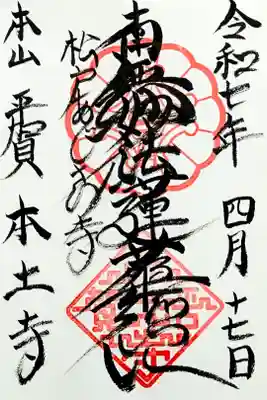 令和七年 四月 十七日
南無妙法蓮華経
松戸あじさい寺
本山 平賀 本土寺